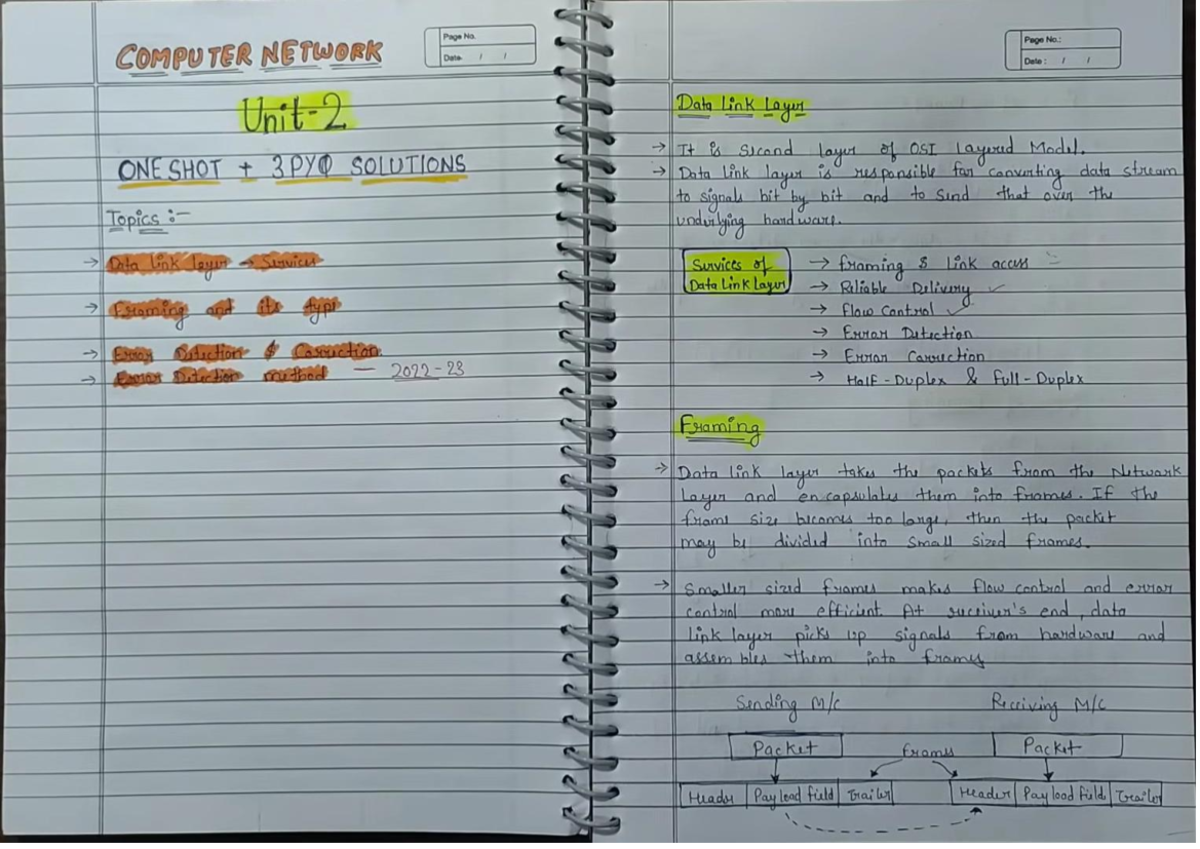 COMPUTER NETWORK
Page No.
Date / /
Unit-2
ONE SHOT + 3 PYQ SOLUTIONS
Topics :-
→ Data link layer → Services
→ Framing and its type
→ Error Detection & Correction
→ Error Detection method — 2022-23
Page No.:
Date : / /
Data Link Layer
→ It is second layer of OSI Layered Model.
→ Data link layer is responsible for converting data stream
to signals bit by bit and to send that over the
underlying hardware.
Services of
Data Link Layer
→ Framing & link access
→ Reliable Delivery ✓
→ Flow Control ✓
→ Error Detection
→ Error Correction
→ Half-Duplex & Full-Duplex
Framing
→ Data link layer takes the packets from the Network
Layer and encapsulates them into frames. If the
frame size becomes too large, then the packet
may be divided into small sized frames.
→ Smaller sized frames makes flow control and error
control more efficient. At receiver's end, data
link layer picks up signals from hardware and
assembles them into frames
Sending M/C Receiving M/C
Packet Frames Packet
Header Payload field Trailer Header Payload field Trailer